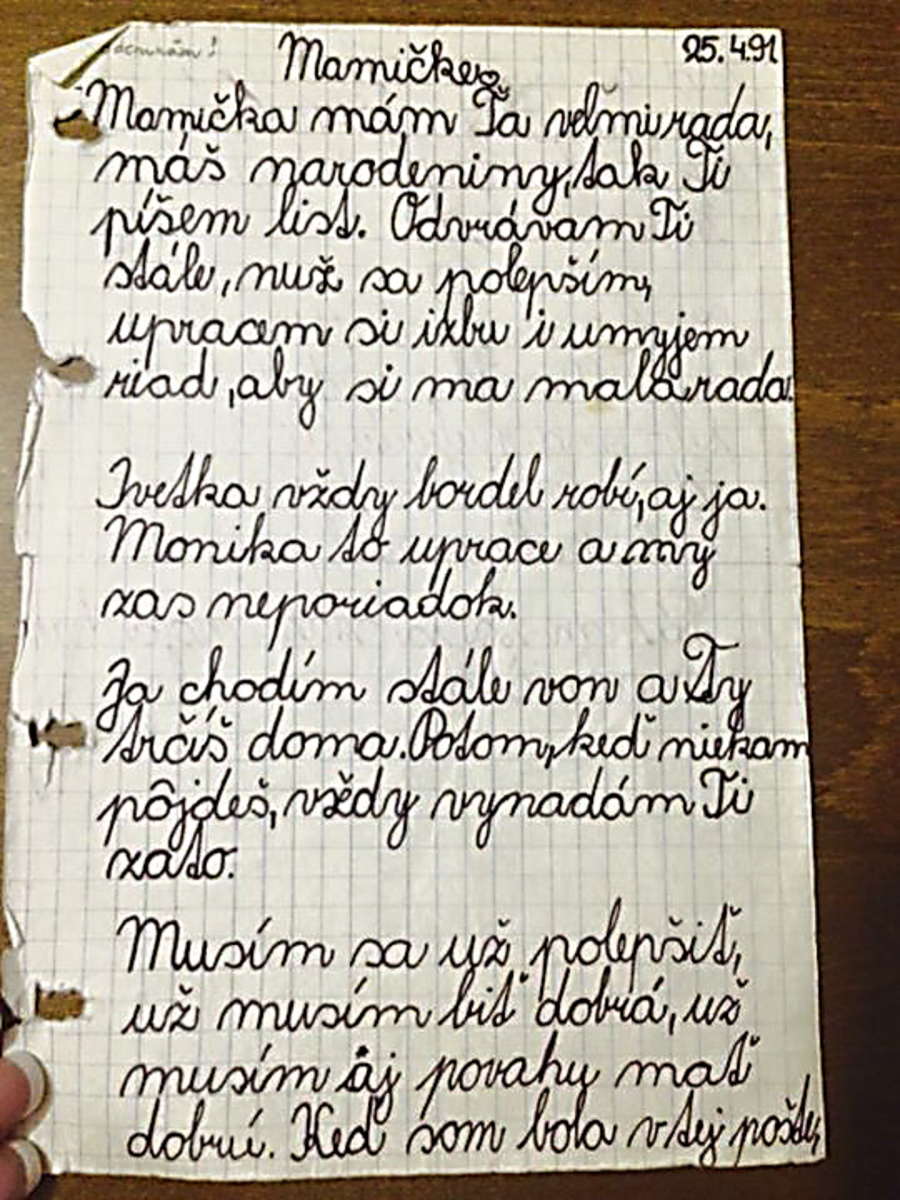 Mamičke
25.4.91
Mamička mám Ťa veľmi rada,
máš narodeniny, tak Ti
píšem list. Odvrávam Ti
stále, nuž sa polepším,
upracem si izbu i umyjem
riad, aby si ma mala rada.
Ivetka vždy bordel robí, aj ja.
Monika to uprace a my
zas neporiadok.
Ja chodím stále von a Ty
trčíš doma. Potom, keď niekam
pôjdeš, vždy vynadám Ti
zato.
Musím sa už polepšiť,
už musím biť dobrá, už
musím aj povahu mať
dobrú. Keď som bola v tej pošte,